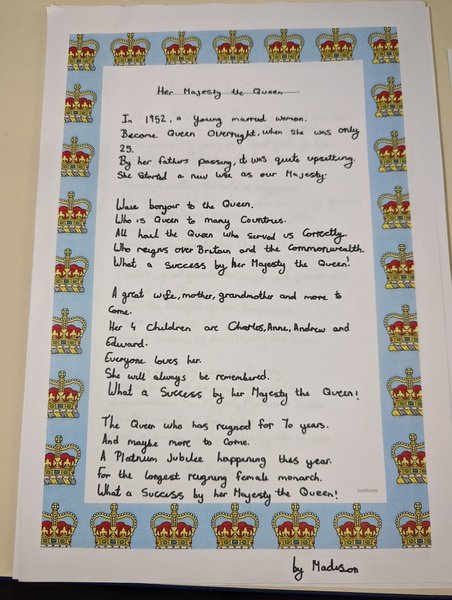 Her Majesty the Queen
In 1952, a young married woman.
Became Queen Overnight, when she was only
25.
By her fathers passing, it was quite upsetting.
She started a new life as our Majesty.
Wave bonjour to the Queen.
Who is Queen to many Countries.
All hail the Queen who served us Correctly.
Who reigns over Britain and the Commonwealth.
What a success by her Majesty the Queen!
A great wife, mother, grandmother and more to
come.
Her 4 Children are Charles, Anne, Andrew and
Edward.
Everyone loves her.
She will always be remembered.
What a Success by her Majesty the Queen!
The Queen who has reigned for 70 years.
And maybe more to come.
A Platinum Jubilee happening this year.
For the longest reigning female monarch.
What a Success by her Majesty the Queen!
by Madison